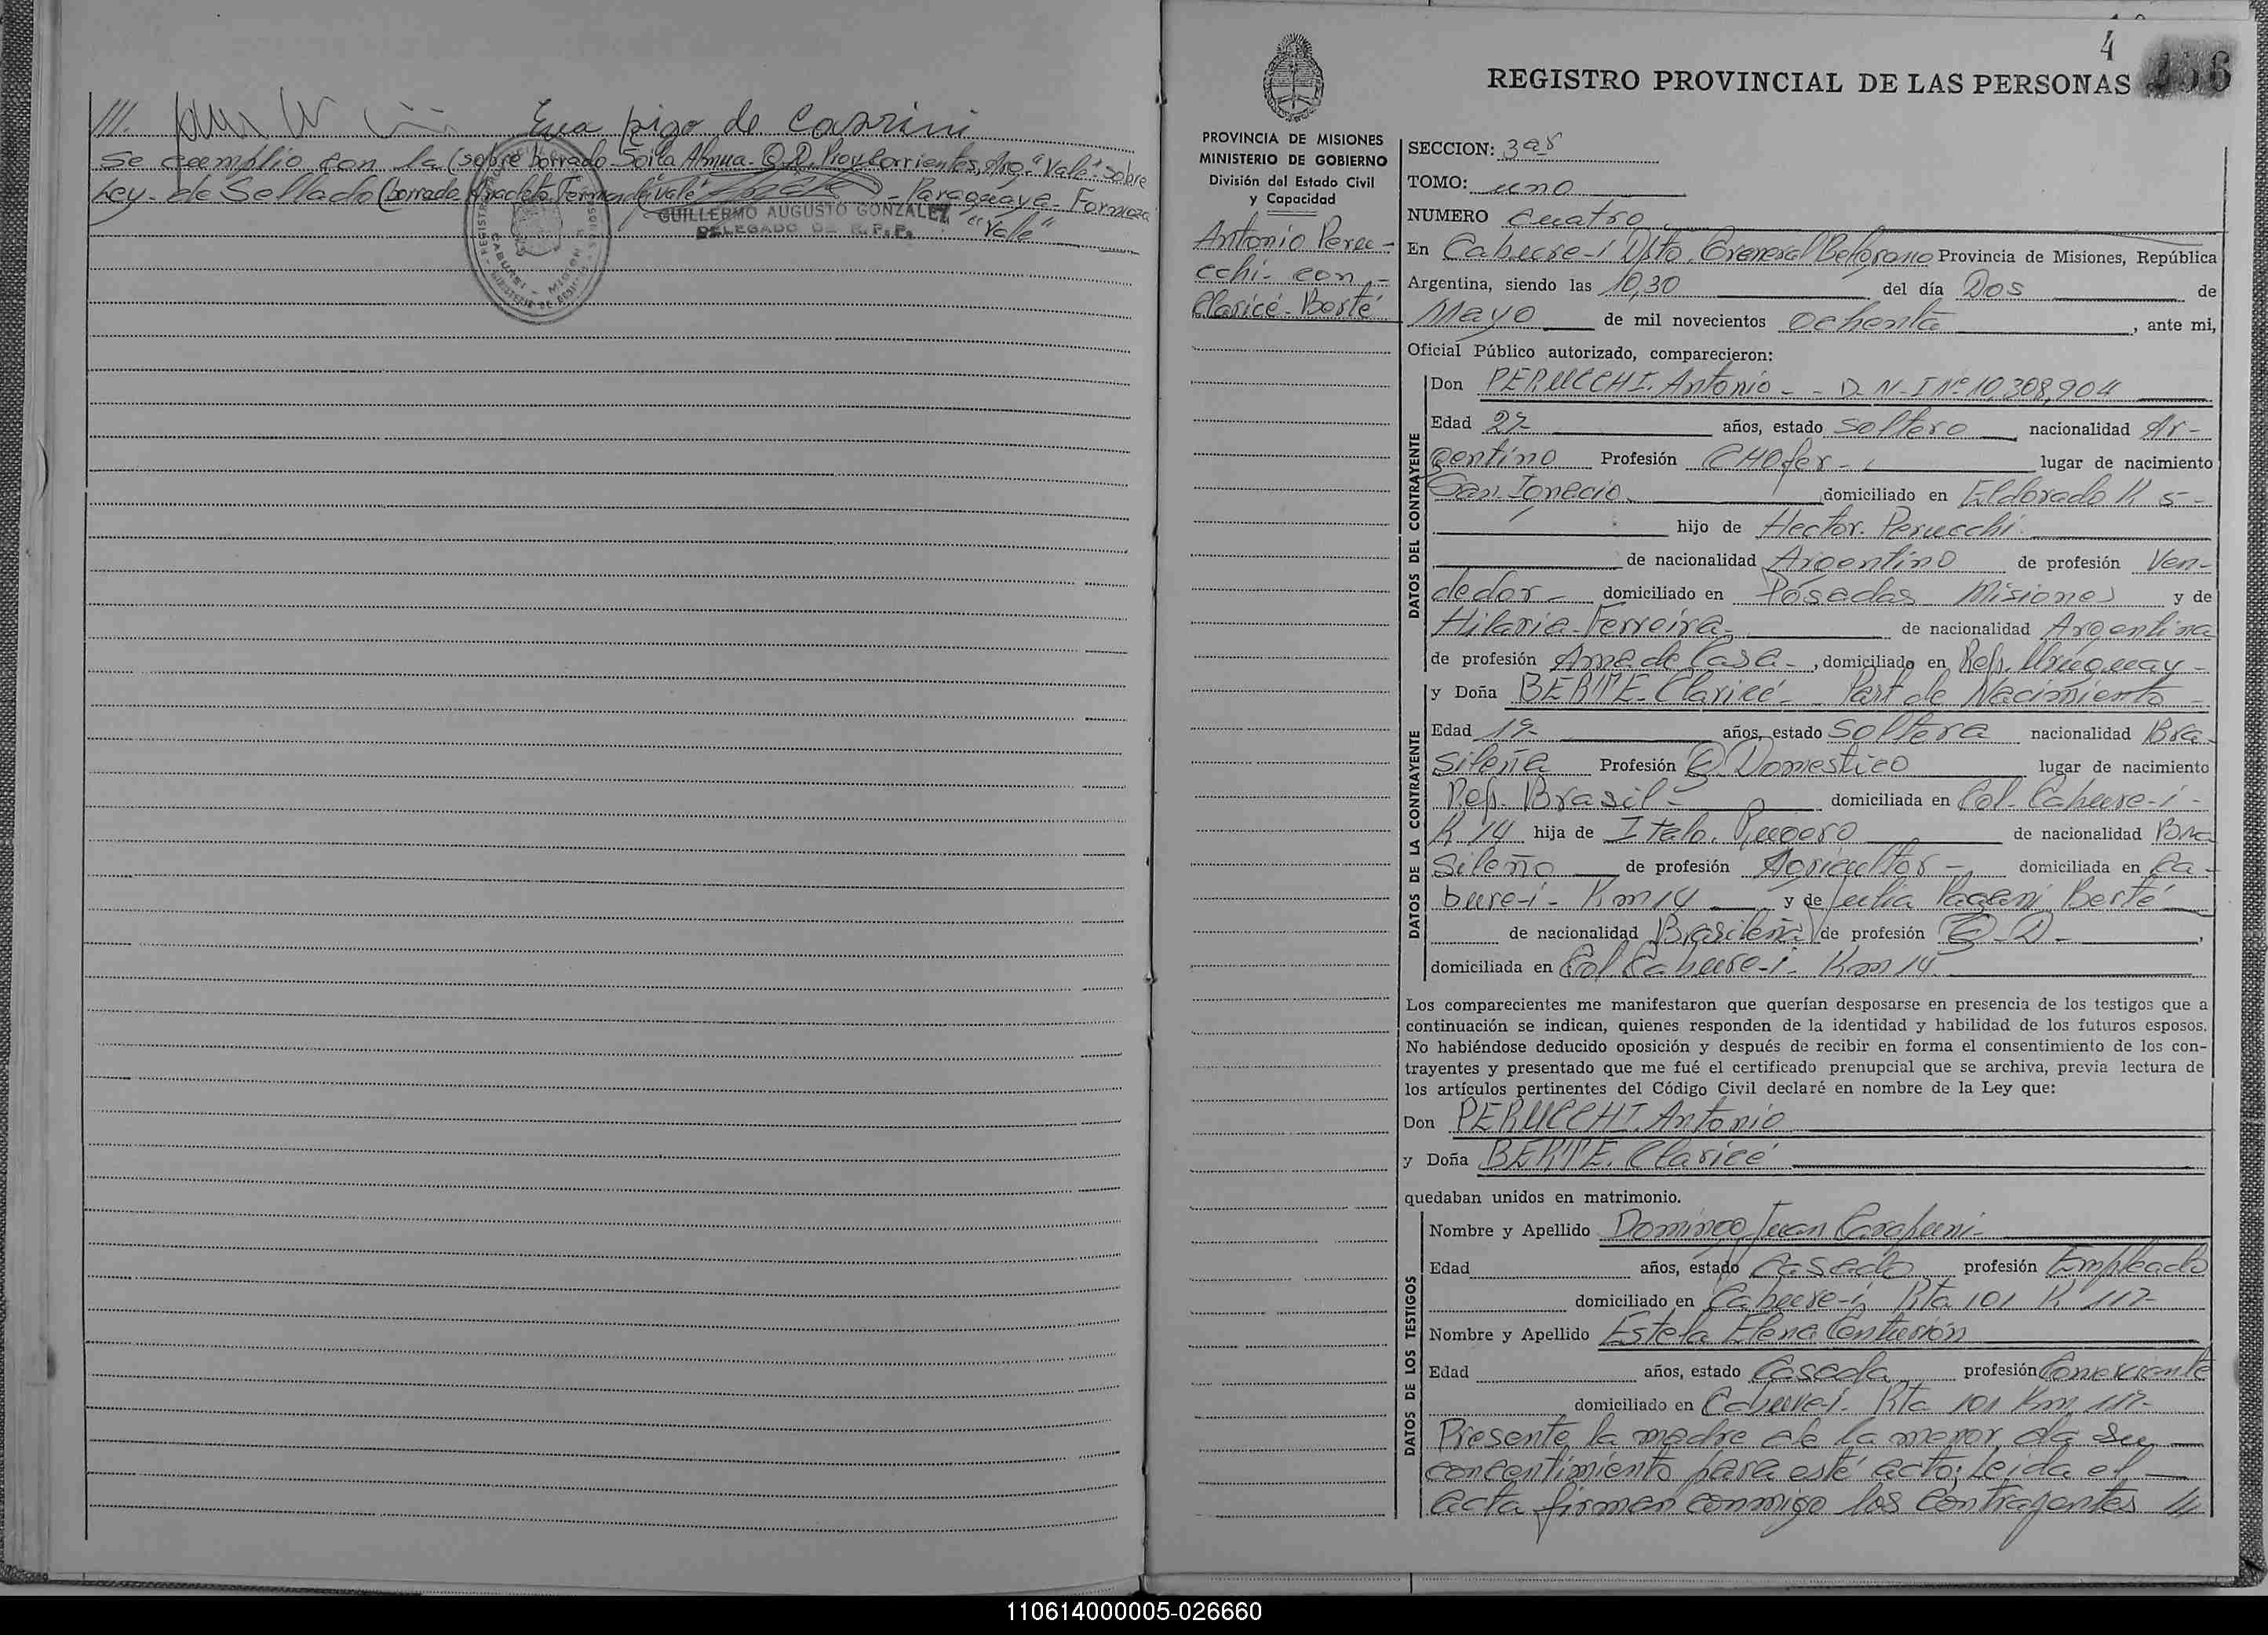 ///. Eva pigo de Casrini
Se cumplio con la (sobre borrado- Soila Almua- Q.D. Prov Corrientes, Arg. "Vale"- sobre
Ley- de Sellado (borrado "Vale" - Paraguaya- Formosa
GUILLERMO AUGUSTO GONZALEZ
DELEGADO DE R.P.P. "Vale"
4
REGISTRO PROVINCIAL DE LAS PERSONAS
PROVINCIA DE MISIONES
MINISTERIO DE GOBIERNO
División del Estado Civil
y Capacidad
Antonio Peru-
cchi- con -
Claricé- Berté
SECCION: 3as
TOMO: uno
NUMERO Cuatro
En Cabure-í Dpto. General Belgrano Provincia de Misiones, República
Argentina, siendo las 10,30 del día Dos de
Mayo de mil novecientos Ochenta, ante mi,
Oficial Público autorizado, comparecieron:
DATOS DEL CONTRAYENTE
Don PERUCCHI. Antonio - - D-N-I Nº 10,308,904
Edad 27- años, estado soltero nacionalidad Ar-
gentino Profesión CHOfer - lugar de nacimiento
San Ignacio domiciliado en Eldorado K 5-
hijo de Hector. Perucchi.
de nacionalidad Argentino de profesión Ven-
dedor - domiciliado en Posadas Misiones y de
Hilaria- Ferreira- de nacionalidad Argentina
de profesión Ama de Casa-, domiciliado en Rep. Uruguay-
DATOS DE LA CONTRAYENTE
y Doña BERTE- Claricé- Part de Nacimiento-
Edad 17- años, estado Soltera nacionalidad Bra-
sileña Profesión Q. Domestico lugar de nacimiento
Rep. Brasil- domiciliada en Col- Cabure-í-
K 14 hija de Italo. Rugero de nacionalidad Bra
Sileño de profesión Agricultor- domiciliada en Ca-
bure-í- Km 14 y de Julia Pagani Berté
de nacionalidad Brasileña de profesión Q-D-,
domiciliada en Col Cabure-í- Km 14
Los comparecientes me manifestaron que querían desposarse en presencia de los testigos que a
continuación se indican, quienes responden de la identidad y habilidad de los futuros esposos.
No habiéndose deducido oposición y después de recibir en forma el consentimiento de los con-
trayentes y presentado que me fué el certificado prenupcial que se archiva, previa lectura de
los artículos pertinentes del Código Civil declaré en nombre de la Ley que:
Don PERUCCHI. Antonio
y Doña BERTE. Claricé
quedaban unidos en matrimonio.
DATOS DE LOS TESTIGOS
Nombre y Apellido Domingo Juan
Edad años, estado Casado profesión Empleado
domiciliado en Cabure-í, Rta 101 K 117-
Nombre y Apellido Estela Elena Centurión
Edad años, estado Casada profesión Comerciante
domiciliado en Cabure-í- Rta 101 Km 117-
Presente la madre de la menor, da su
concentimiento para esté acto: Leída el
acta firman conmigo los contrayentes ///
110614000005-026660